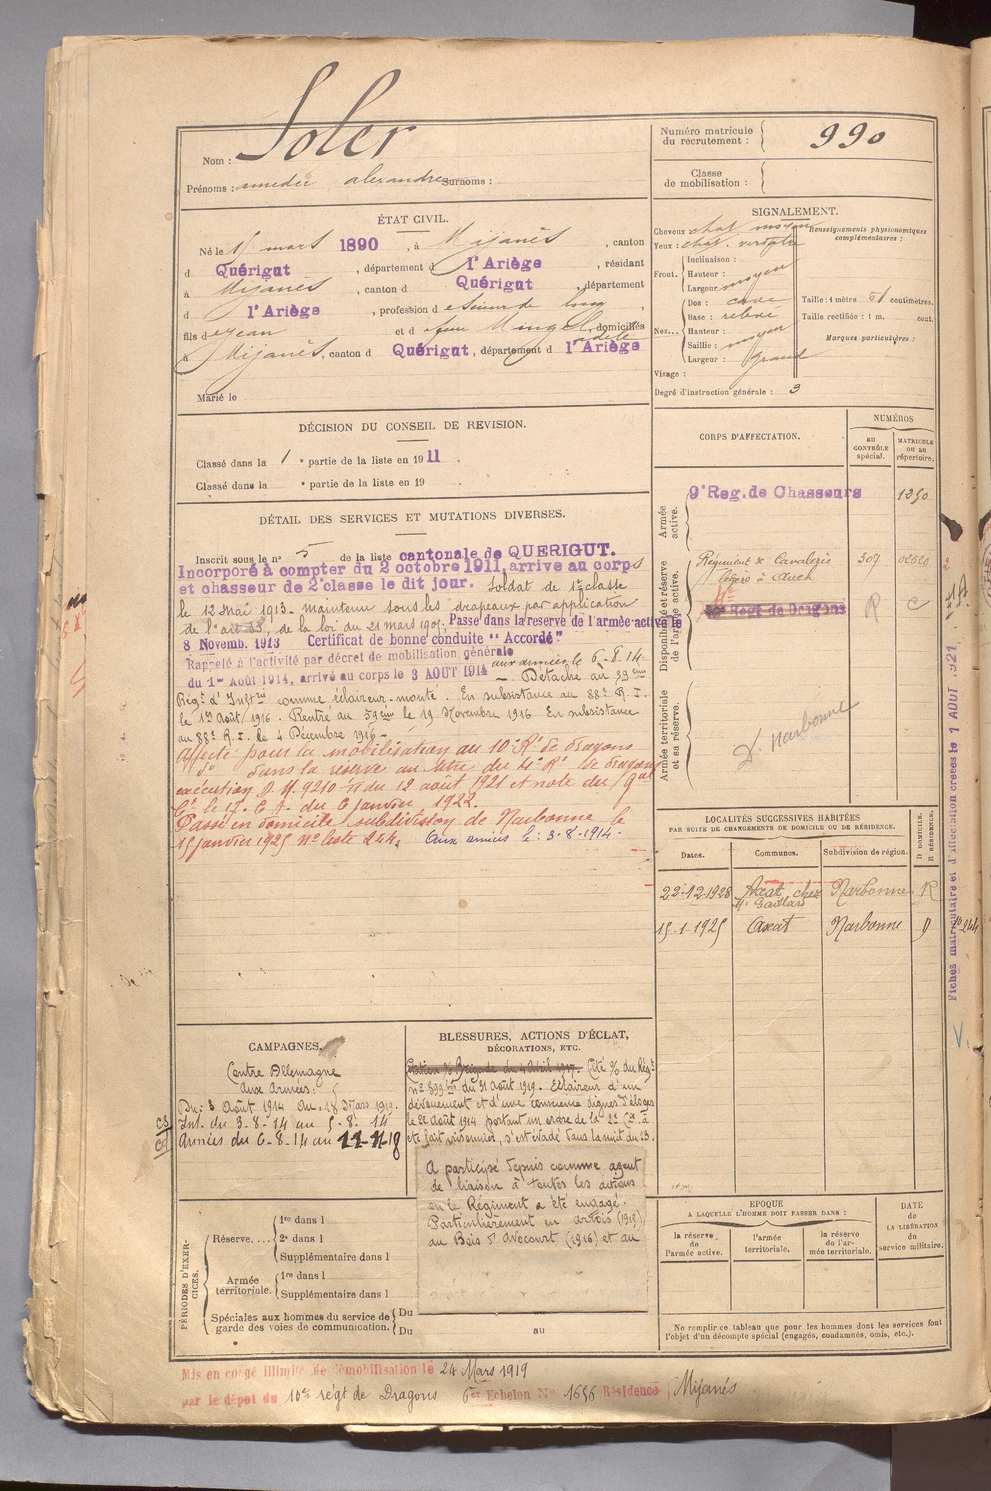 Nom : Soler
Prénoms : amedée alexandre Surnoms :
Numéro matricule du recrutement : 990
Classe de mobilisation :
ÉTAT CIVIL.
Né le 15 mars 1890, à Mijanès, canton
d Quérigut, département d l'Ariège, résidant
à Mijanès, canton d Quérigut, département
d l'Ariège, profession d
fils d Jean et d domiciliés
à Mijanès, canton d Quérigut, département d l'Ariège
Marié le
SIGNALEMENT.
Cheveux chat. moyen
Yeux : chat. verdatre
Renseignements physionomiques complémentaires :
Front. Inclinaison :
Hauteur :
Largeur moyen
Nez... Dos : cave
Base : relevé
Hauteur :
Saillie : moyen
Largeur : grand
Taille : 1 mètre 51 centimètres.
Taille rectifiée : 1 m. cent.
Marques particulières :
Visage :
Degré d'instruction générale : 3
DÉCISION DU CONSEIL DE REVISION.
Classé dans la 1e partie de la liste en 1911.
Classé dans la e partie de la liste en 19 .
DÉTAIL DES SERVICES ET MUTATIONS DIVERSES.
Inscrit sous le n° 5 de la liste cantonale de QUERIGUT.
Incorporé à compter du 2 octobre 1911, arrive au corps
et chasseur de 2e classe le dit jour. Soldat de 1re classe
le 12 Mai 1913 - maintenu sous les drapeaux par application
de l'art 33, de la loi du 21 mars 1905. Passe dans la réserve de l'armée active le
8 Novemb. 1913 Certificat de bonne conduite "Accordé"
Rappelé à l'activité par décret de mobilisation générale
du 1er Août 1914, arrivé au corps le 3 AOUT 1914 aux armées le 6-8-14 - Détaché au 59eme
Régt d'Inftrie comme éclaireur monté. En subsistance au 88e R.I.
le 1er Août 1916. Rentré au 59eme le 19 Novembre 1916 En subsistance
au 88e R.I. le 4 Décembre 1916 -
Affecté pour la mobilisation au 10e Rt de dragons
do dans la réserve au titre du 4e Rt de dragons
exécution D.M. 9210 du 12 août 1921 et note du Gal
Ct le 17e C.A. du 6 janvier 1922.
Passé en domicile subdivision de Narbonne le
15 janvier 1925 No liste 244. Aux armées le : 3-8-1914.
CORPS D'AFFECTATION.
NUMÉROS
au CONTRÔLE spécial.
MATRICULE ou au répertoire.
Armée active.
9e Reg. de Chasseurs 1250
Disponibilité et réserve de l'armée active.
Régiment de Cavalerie légère à Auch 307
Regt de Dragons
R
C
Armée territoriale et sa réserve.
D. Narbonne
Fiches matriculaire et d'affectation créées le 1 AOUT 1921
LOCALITÉS SUCCESSIVES HABITÉES
PAR SUITE DE CHANGEMENTS DE DOMICILE OU DE RÉSIDENCE.
Dates. Communes. Subdivision de région. D DOMICILE. R RÉSIDENCE.
22-12-1923 Axat chez Mr Gaillard Narbonne R
15-1-1925 Axat Narbonne D No 244
CAMPAGNES.
Contre Allemagne
Aux Armées :
Du : 3 Août 1914 au 18 Mars 1919.
Int. du 3-8-14 au 5-8-14
Armées du 6-8-14 au 11-11-18
BLESSURES, ACTIONS D'ÉCLAT,
DÉCORATIONS, ETC.
Citation à la Brigade du 4 Avril 1917. Cité % du Régt
no 399 du 31 Août 1919. Éclaireur d'un
dévouement et d'une conscience dignes d'éloges
le 22 Août 1914 portant un ordre de la 22e Cie a
été fait prisonnier, s'est évadé dans la nuit du 23.
A participé depuis comme agent
de liaison à toutes les actions
où le Régiment a été engagé.
Particulièrement en Artois (1915)
au Bois d'Avocourt (1916) et au
PÉRIODES D'EXERCICES.
Réserve.... 1re dans l
2e dans l
Supplémentaire dans l
Armée territoriale. 1re dans l
Supplémentaire dans l
Spéciales aux hommes du service de garde des voies de communication. Du
Du au
EPOQUE
A LAQUELLE L'HOMME DOIT PASSER DANS :
la réserve de l'armée active.
l'armée territoriale.
la réserve de l'armée territoriale.
DATE de LA LIBÉRATION du service militaire.
Ne remplir ce tableau que pour les hommes dont les services font
l'objet d'un décompte spécial (engagés, condamnés, omis, etc.).
Mis en congé illimité de démobilisation le 24 Mars 1919
par le dépot du 10e régt de Dragons 6e Echelon No 1656 Résidence Mijanès